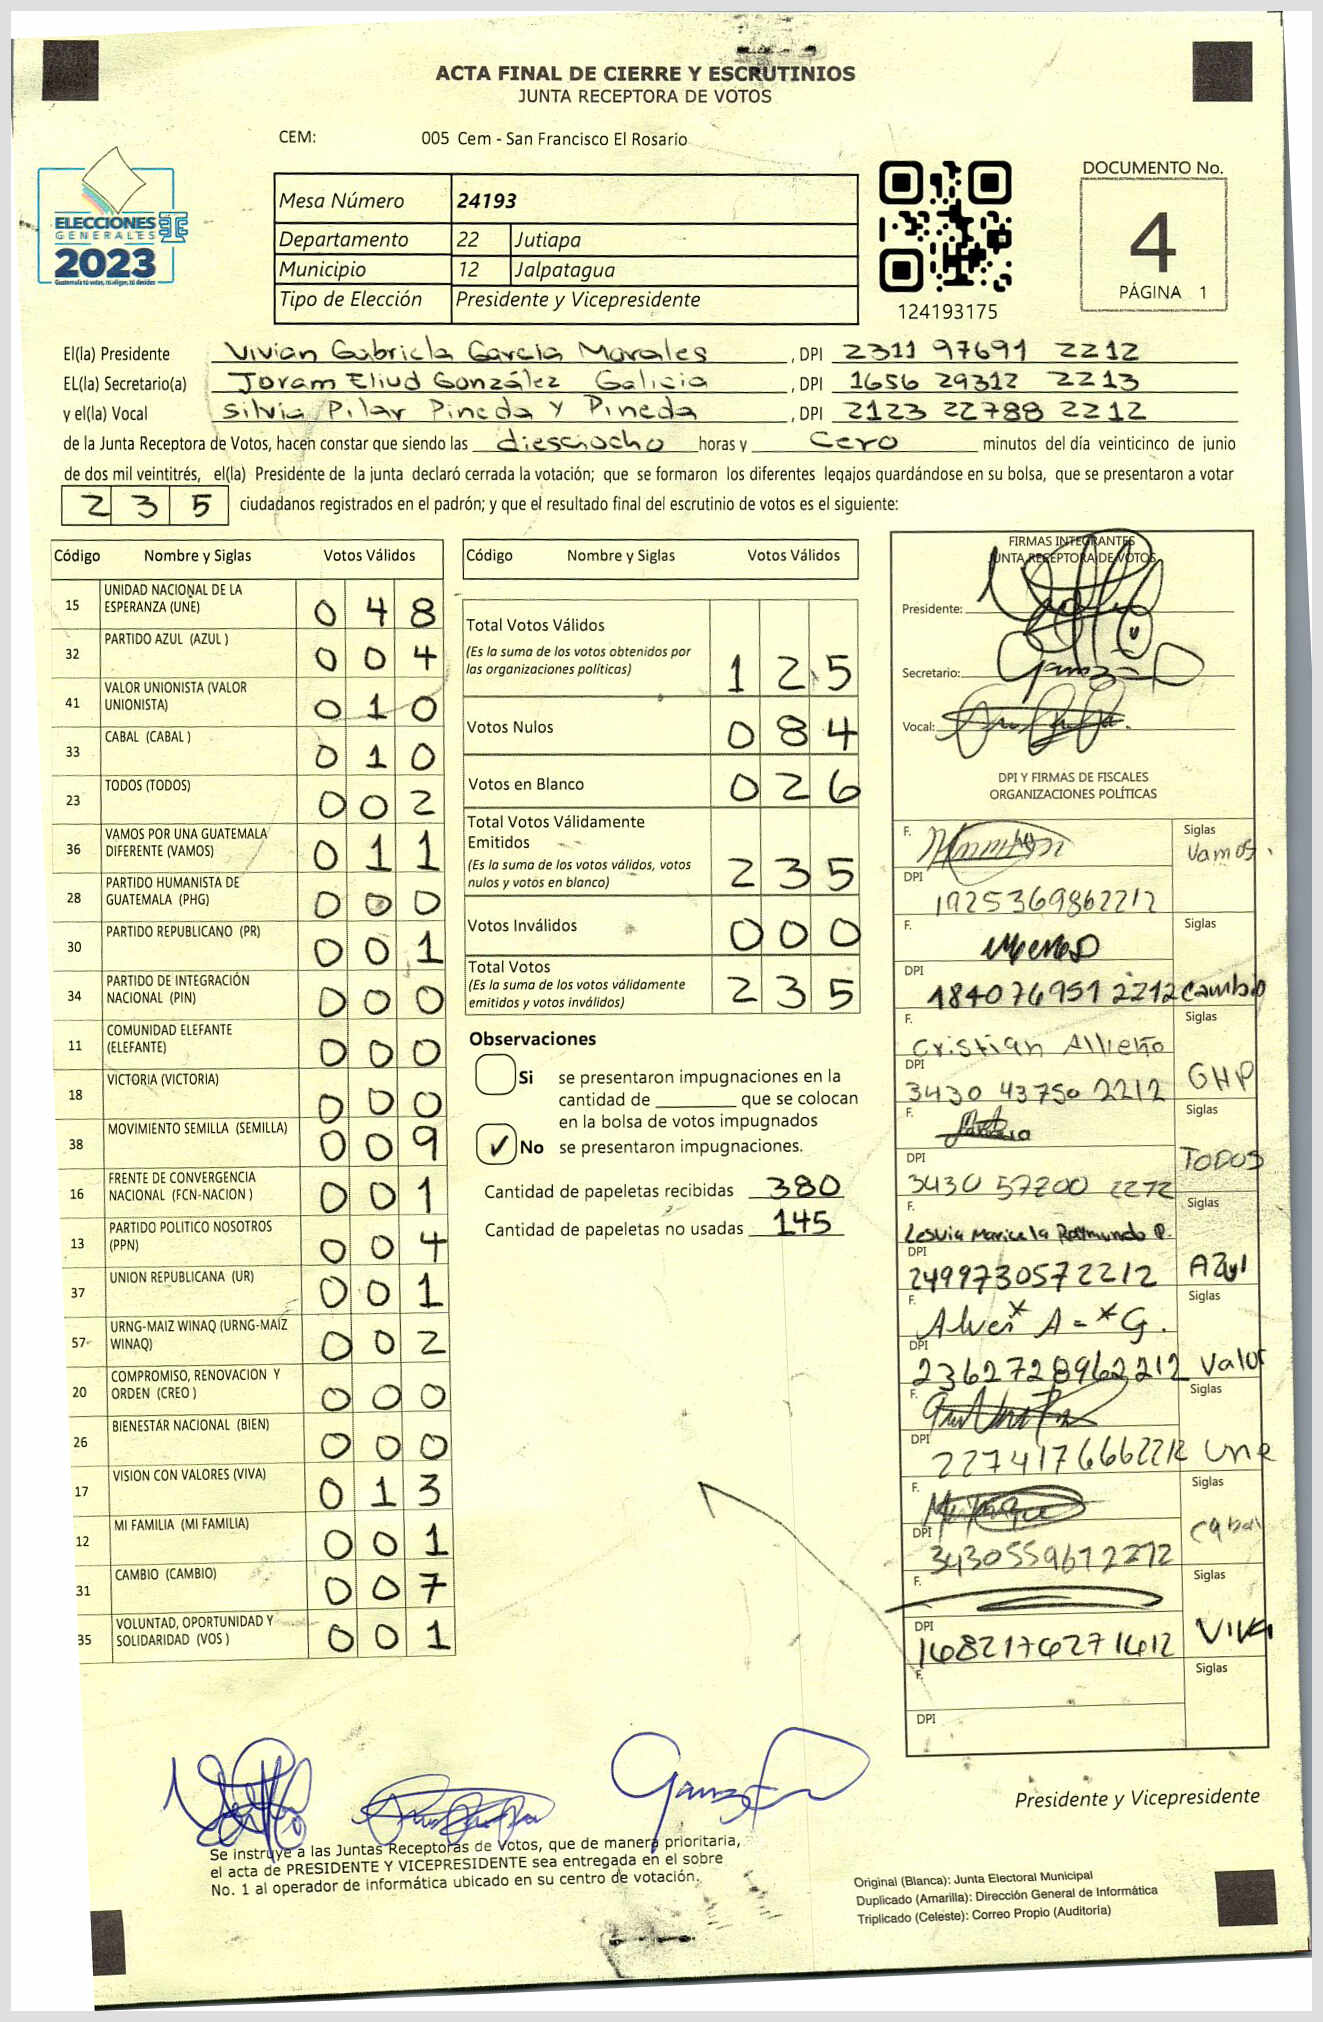 ACTA FINAL DE CIERRE Y ESCRUTINIOS
JUNTA RECEPTORA DE VOTOS
CEM: 005 Cem - San Francisco El Rosario
ELECCIONES
GENERALES
2023
Guatemala tú votas, tú eliges, tú decides
Mesa Número 24193
Departamento 22 Jutiapa
Municipio 12 Jalpatagua
Tipo de Elección Presidente y Vicepresidente
124193175
DOCUMENTO No.
4
PÁGINA 1
El(la) Presidente Vivian Gabriela García Morales, DPI 2311 97691 2212
EL(la) Secretario(a) Joram Eliud González Galicia, DPI 1656 29312 2213
y el(la) Vocal Silvia Pilar Pineda y Pineda, DPI 2123 22788 2212
de la Junta Receptora de Votos, hacen constar que siendo las diesciocho horas y cero minutos del día veinticinco de junio
de dos mil veintitrés, el(la) Presidente de la junta declaró cerrada la votación; que se formaron los diferentes legajos guardándose en su bolsa, que se presentaron a votar
235 ciudadanos registrados en el padrón; y que el resultado final del escrutinio de votos es el siguiente:
Código Nombre y Siglas Votos Válidos
15 UNIDAD NACIONAL DE LA ESPERANZA (UNE) 048
32 PARTIDO AZUL (AZUL ) 004
41 VALOR UNIONISTA (VALOR UNIONISTA) 010
33 CABAL (CABAL ) 010
23 TODOS (TODOS) 002
36 VAMOS POR UNA GUATEMALA DIFERENTE (VAMOS) 011
28 PARTIDO HUMANISTA DE GUATEMALA (PHG) 000
30 PARTIDO REPUBLICANO (PR) 001
34 PARTIDO DE INTEGRACIÓN NACIONAL (PIN) 000
11 COMUNIDAD ELEFANTE (ELEFANTE) 000
18 VICTORIA (VICTORIA) 000
38 MOVIMIENTO SEMILLA (SEMILLA) 009
16 FRENTE DE CONVERGENCIA NACIONAL (FCN-NACION ) 001
13 PARTIDO POLITICO NOSOTROS (PPN) 004
37 UNION REPUBLICANA (UR) 001
57 URNG-MAIZ WINAQ (URNG-MAIZ WINAQ) 002
20 COMPROMISO, RENOVACION Y ORDEN (CREO ) 000
26 BIENESTAR NACIONAL (BIEN) 000
17 VISION CON VALORES (VIVA) 013
12 MI FAMILIA (MI FAMILIA) 001
31 CAMBIO (CAMBIO) 007
35 VOLUNTAD, OPORTUNIDAD Y SOLIDARIDAD (VOS ) 001
Código Nombre y Siglas Votos Válidos
Total Votos Válidos
(Es la suma de los votos obtenidos por
las organizaciones políticas) 125
Votos Nulos 084
Votos en Blanco 026
Total Votos Válidamente
Emitidos
(Es la suma de los votos válidos, votos
nulos y votos en blanco) 235
Votos Inválidos 000
Total Votos
(Es la suma de los votos válidamente
emitidos y votos inválidos) 235
Observaciones
Si se presentaron impugnaciones en la
cantidad de ________ que se colocan
en la bolsa de votos impugnados
✓ No se presentaron impugnaciones.
Cantidad de papeletas recibidas 380
Cantidad de papeletas no usadas 145
FIRMAS INTEGRANTES
JUNTA RECEPTORA DE VOTOS
Presidente:
Secretario:
Vocal:
DPI Y FIRMAS DE FISCALES
ORGANIZACIONES POLÍTICAS
F. Siglas Vamos.
DPI 1925369862212
F. Siglas
DPI 1840769512212 Cambio
F. Cristian Siglas
DPI 3430 43750 2212 GHP
F. Siglas
DPI 3430 57200 2212 TODOS
F. Lesvia Maricela Raymundo P. Siglas
DPI 2499730572212 AZul
F. Siglas
DPI 2362728962212 Valor
F. Siglas
DPI 2274176662212 une
F. Siglas
DPI 3430559672212 Cabal
F. Siglas
DPI 1682176271612 VIVA
F. Siglas
DPI
Presidente y Vicepresidente
Se instruye a las Juntas Receptoras de Votos, que de manera prioritaria,
el acta de PRESIDENTE Y VICEPRESIDENTE sea entregada en el sobre
No. 1 al operador de informática ubicado en su centro de votación.
Original (Blanca): Junta Electoral Municipal
Duplicado (Amarilla): Dirección General de Informática
Triplicado (Celeste): Correo Propio (Auditoría)